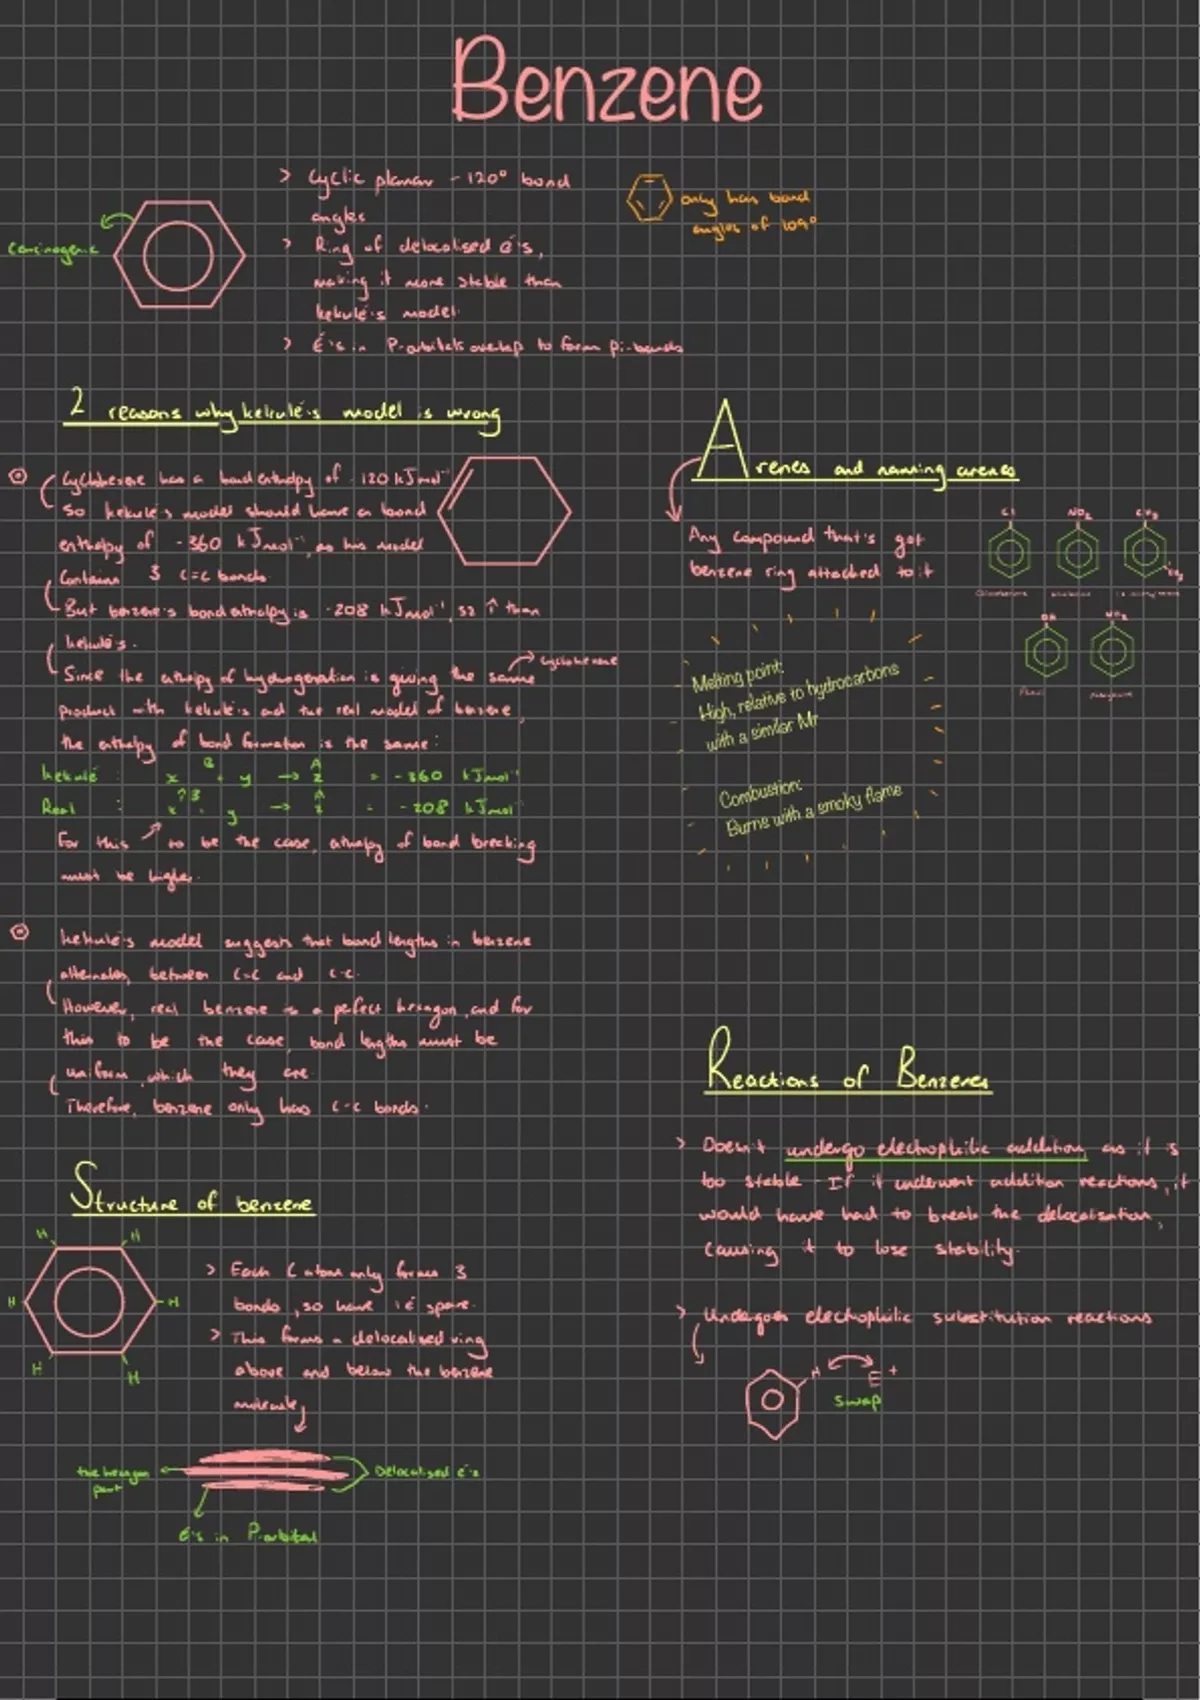 Benzene
> Cyclic planar - 120° bond
angles
> Ring of delocalised é's,
making it more stable than
kekulé's model.
> é's in P-orbitals overlap to form pi-bonds
Carcinogenic
only has bond
angles of 109°
2 reasons why kekulé's model is wrong
Cyclohexene has a bond enthalpy of -120 kJmol⁻¹
So kekulé's model should have a bond
enthalpy of -360 kJmol⁻¹, as his model
Contains 3 C=C bonds.
But benzene's bond enthalpy is -208 kJmol⁻¹, so ↑ than
kekulé's.
Since the enthalpy of hydrogenation is giving the same → Cyclohexane
product with kekulé's and the real model of benzene,
the enthalpy of bond formation is the same:
B A
kekulé : x + y → z = -360 kJmol⁻¹
?B A
Real : x + y → z = -208 kJmol⁻¹
For this to be the case, enthalpy of bond breaking
must be higher.
kekulé's model suggests that bond lengths in benzene
alternates between C=C and C-C.
However, real benzene is a perfect hexagon, and for
this to be the case, bond lengths must be
uniform, which they are.
Therefore, benzene only has C-C bonds.
Structure of benzene
H H
H H
H H
> Each C atom only forms 3
bonds, so have 1é spare.
> This forms a delocalised ring
above and below the benzene
molecule,
the hexagon
part
Delocalised é's
é's in P-orbital
Arenes and naming arenes
Any compound that's got
benzene ring attached to it
Cl NO₂ CH₃
CH₃
Chlorobenzene
OH NO₂
Phenol
Melting point:
High, relative to hydrocarbons
with a similar Mr
Combustion:
Burns with a smoky flame
Reactions of Benzenes
> Doesn't undergo electrophilic addition, as it is
too stable - If it underwent addition reactions, it
would have had to break the delocalisation,
causing it to lose stability.
> Undergoes electrophilic substitution reactions
H E+
Swap